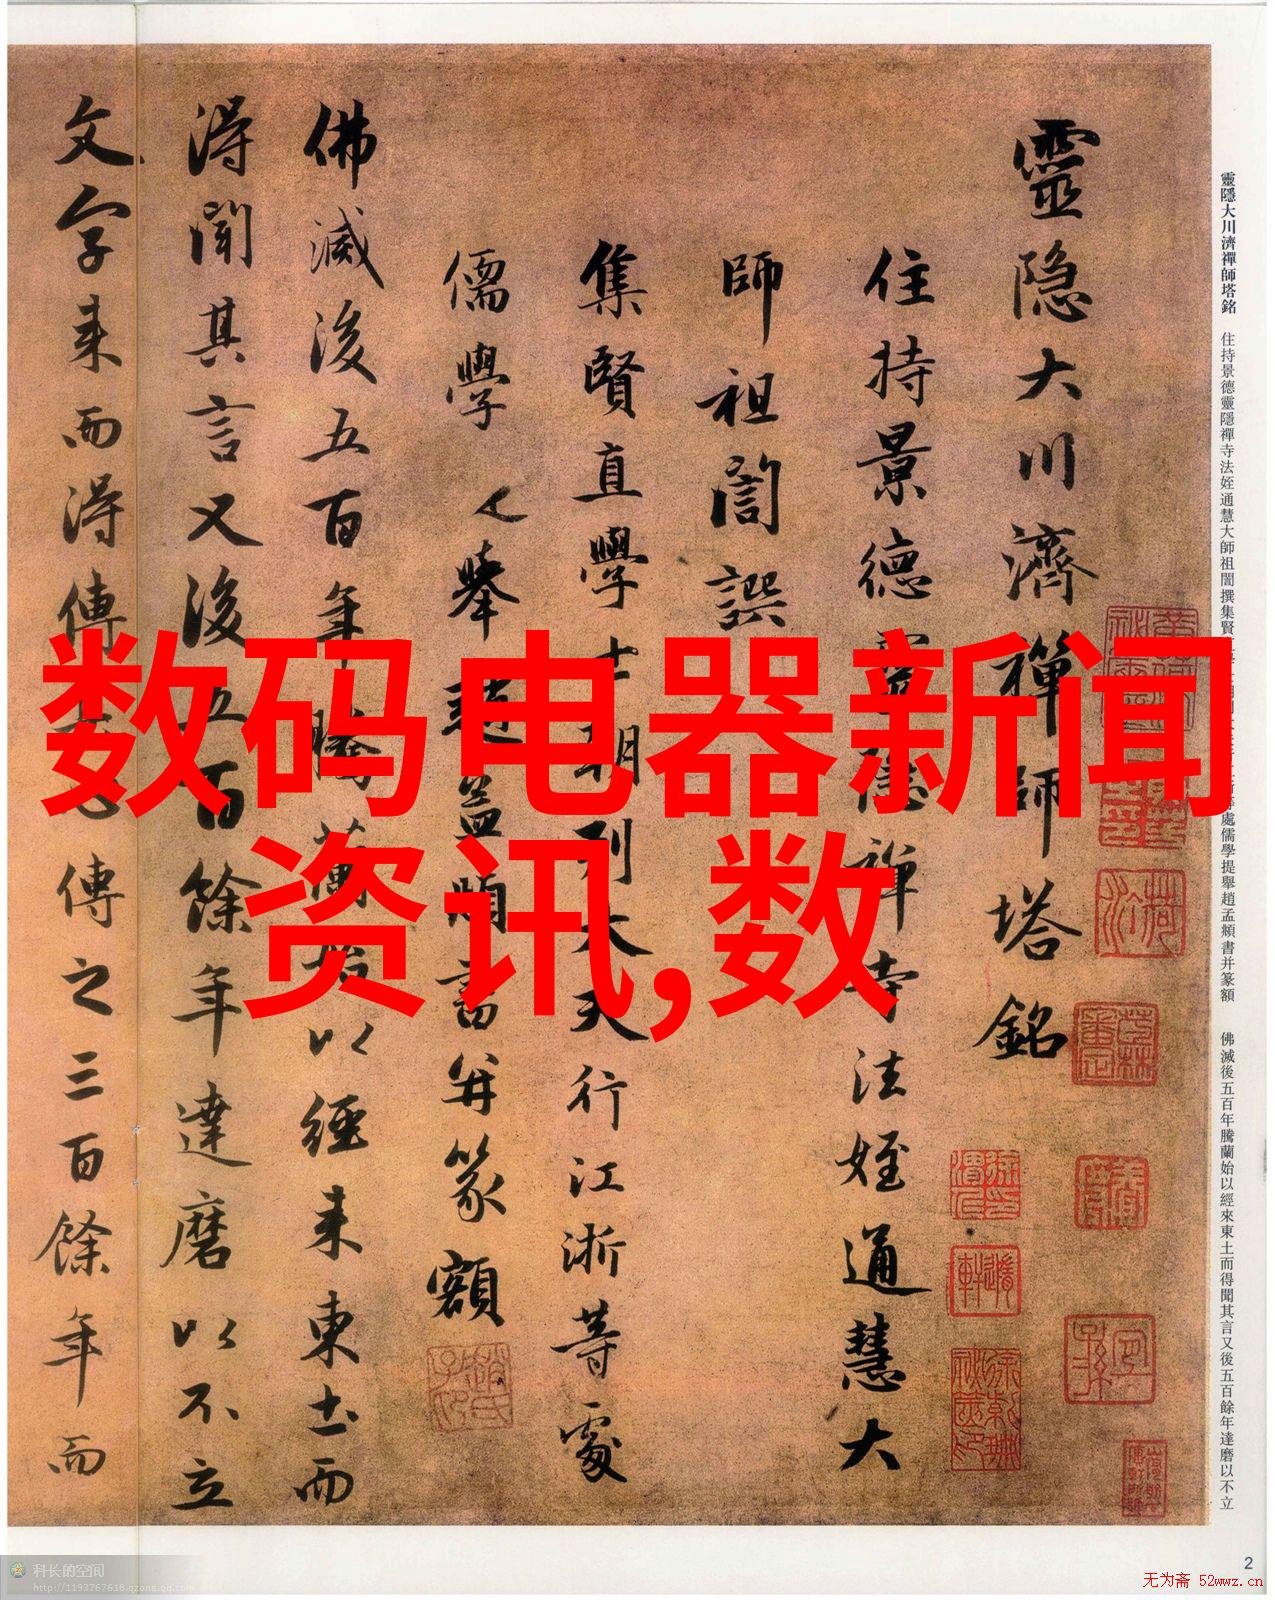 數码电器新闻
资讯,数
靈隱大川濟禪師塔銘 住持景德靈隱禪寺法姪通慧大師祖誾撰集賢 等處儒學提舉趙孟頫書并篆額 佛滅後五百年騰蘭始以經來東土而得聞其言又後五百餘年達磨以不立
靈隐大川濟禪師塔銘
住持景德靈隱禪寺法姪通慧大
師祖誾譔
集賢直學士朝列大夫行江浙等處
儒學舉趙孟頫書并篆額
佛滅後五百年騰蘭始以經来東土而
淂聞其言又後五百餘年達磨以不立
文字来而淂傳傳之三百餘年而
科长的空间
http://1193767618.qzone.qq.com
2
无为斋 52wwz.cn